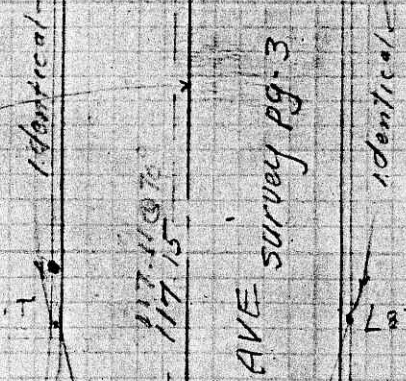 identical
117.11@70°
117.15
AVE
survey pg-3
identical
L8